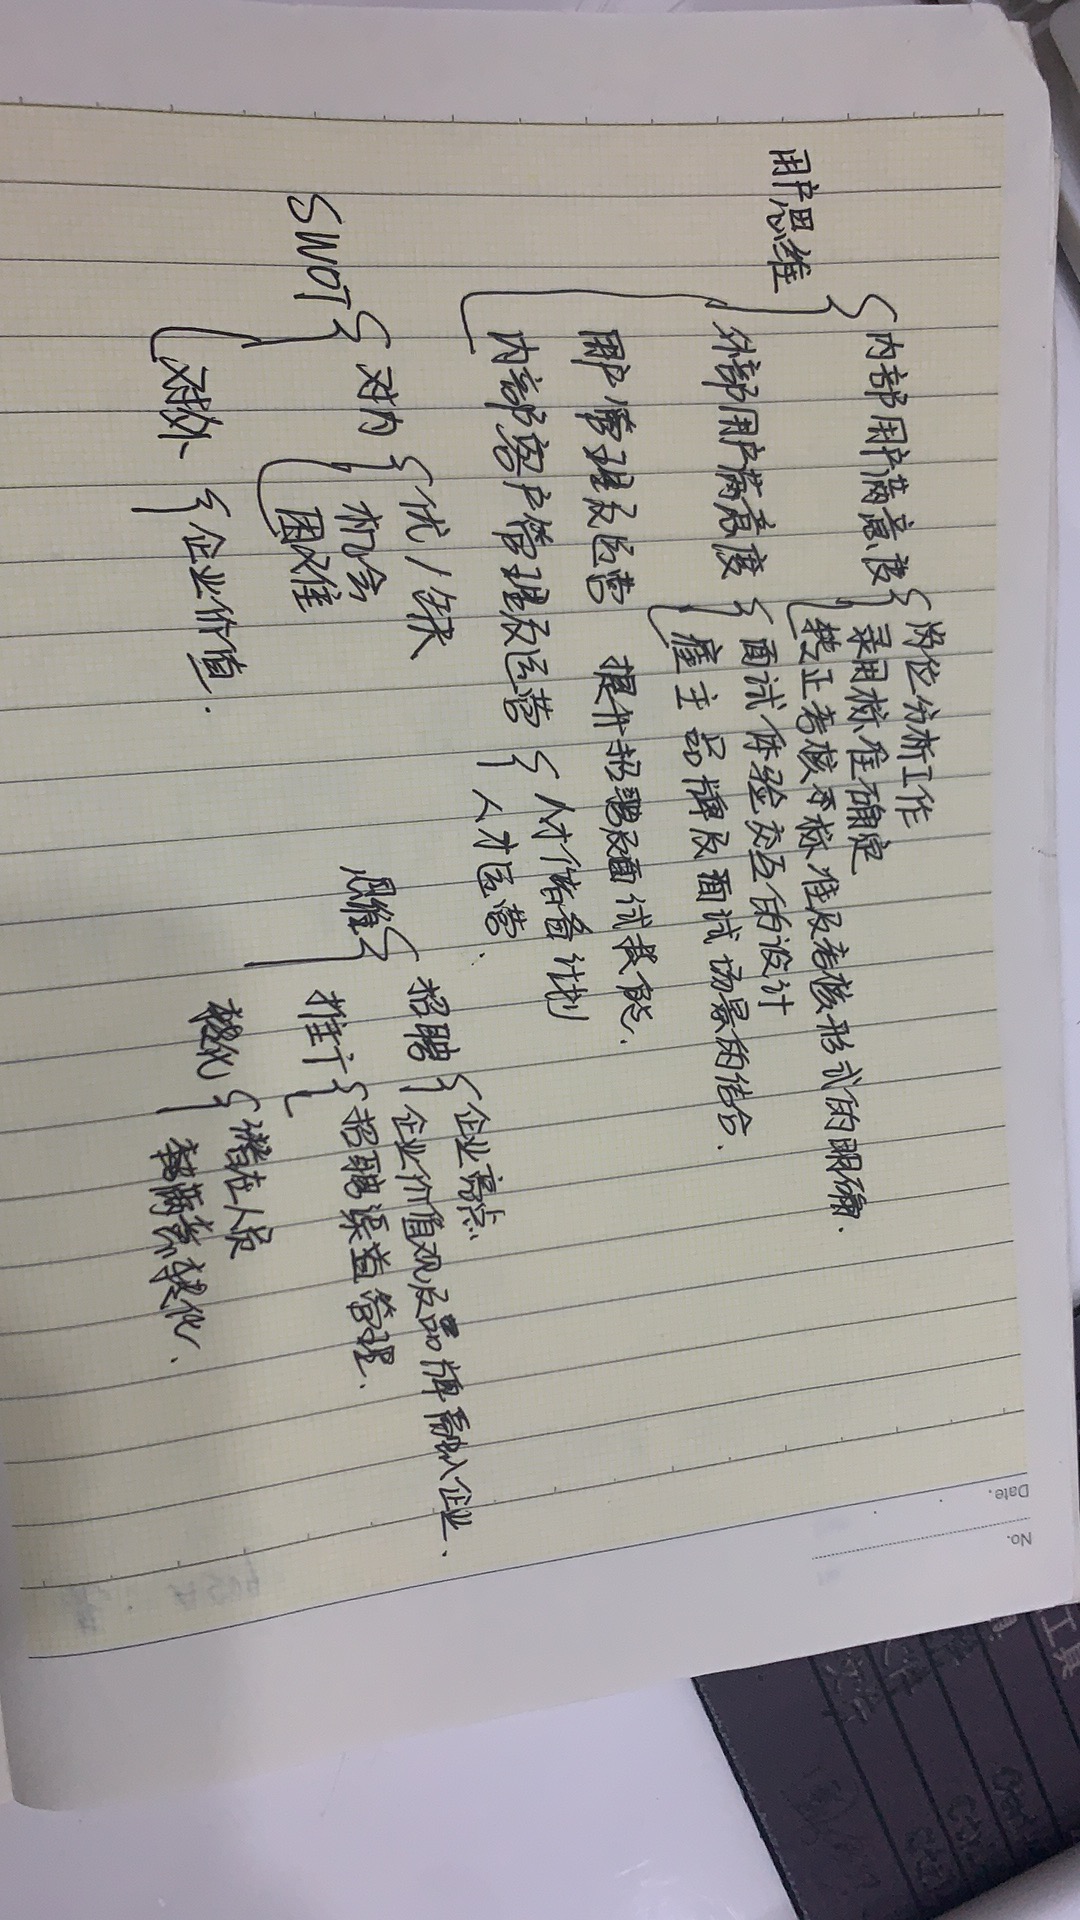 No.
Date.
岗位分析工作
内部用户满意度
录用标准确定
转正考核标准及考核形式的明确.
用户思维
面试体验交互的设计
外部用户满意度
雇主品牌及面试场景的结合.
用户管理及运营 提升招聘及面试技能.
人才储备计划
内部客户管理及运营
人才运营.
企业亮点
优/缺
招聘
企业价值观及品牌融入企业.
SWOT
对内
机会
思维
推广
招聘渠道管理.
困难
潜在人员
对外
企业价值.
转化.
工具